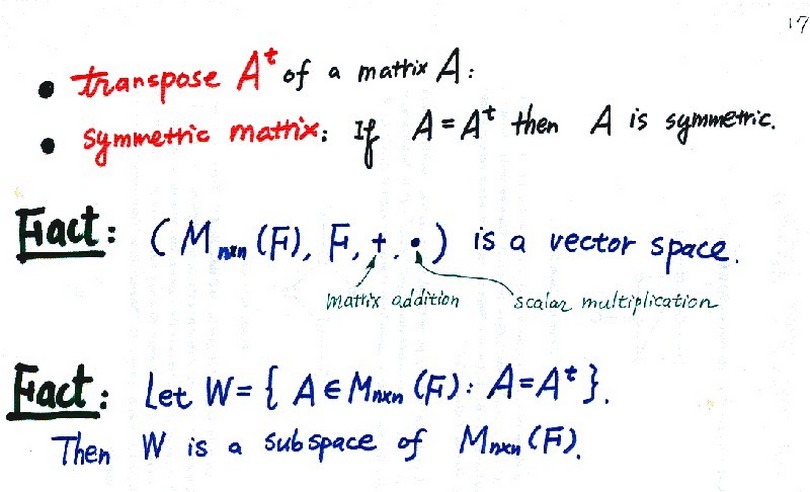 17
• transpose Aᵗ of a matrix A:
• symmetric matrix: If A = Aᵗ then A is symmetric.
Fact: (Mₙₓₙ(F), F, +, •) is a vector space.
matrix addition scalar multiplication
Fact: Let W = { A ∈ Mₙₓₙ(F) : A = Aᵗ }.
Then W is a subspace of Mₙₓₙ(F).